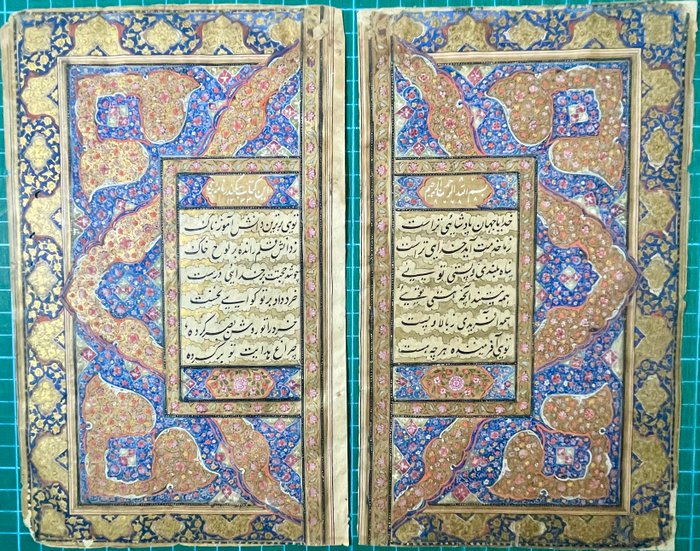 بسم الله الرحمن الرحیم
خدایا جهان پادشاهی تراست
ز ما خدمت آید خدایی تراست
پناه بلندی و پستی تویی
همه نیستند آنچه هستی تویی
همه آفریدی ز بالا و پست
تویی آفرینندهٔ هر چه هست
کتاب سکندرنامه
تویی برترین دانش آموز پاک
ز دانش قلم رانده بر لوح خاک
چو شد حجتت بر خدایی درست
خرد داد بر تو گوایی نخست
خرد را تو روشن بصر کردهٔ
چراغ هدایت تو بر کردهٔ